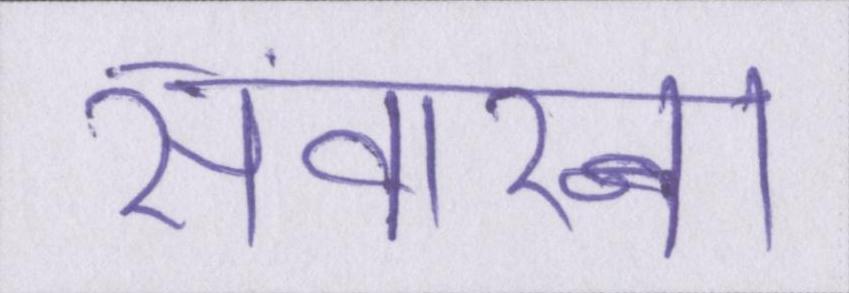 संवारना